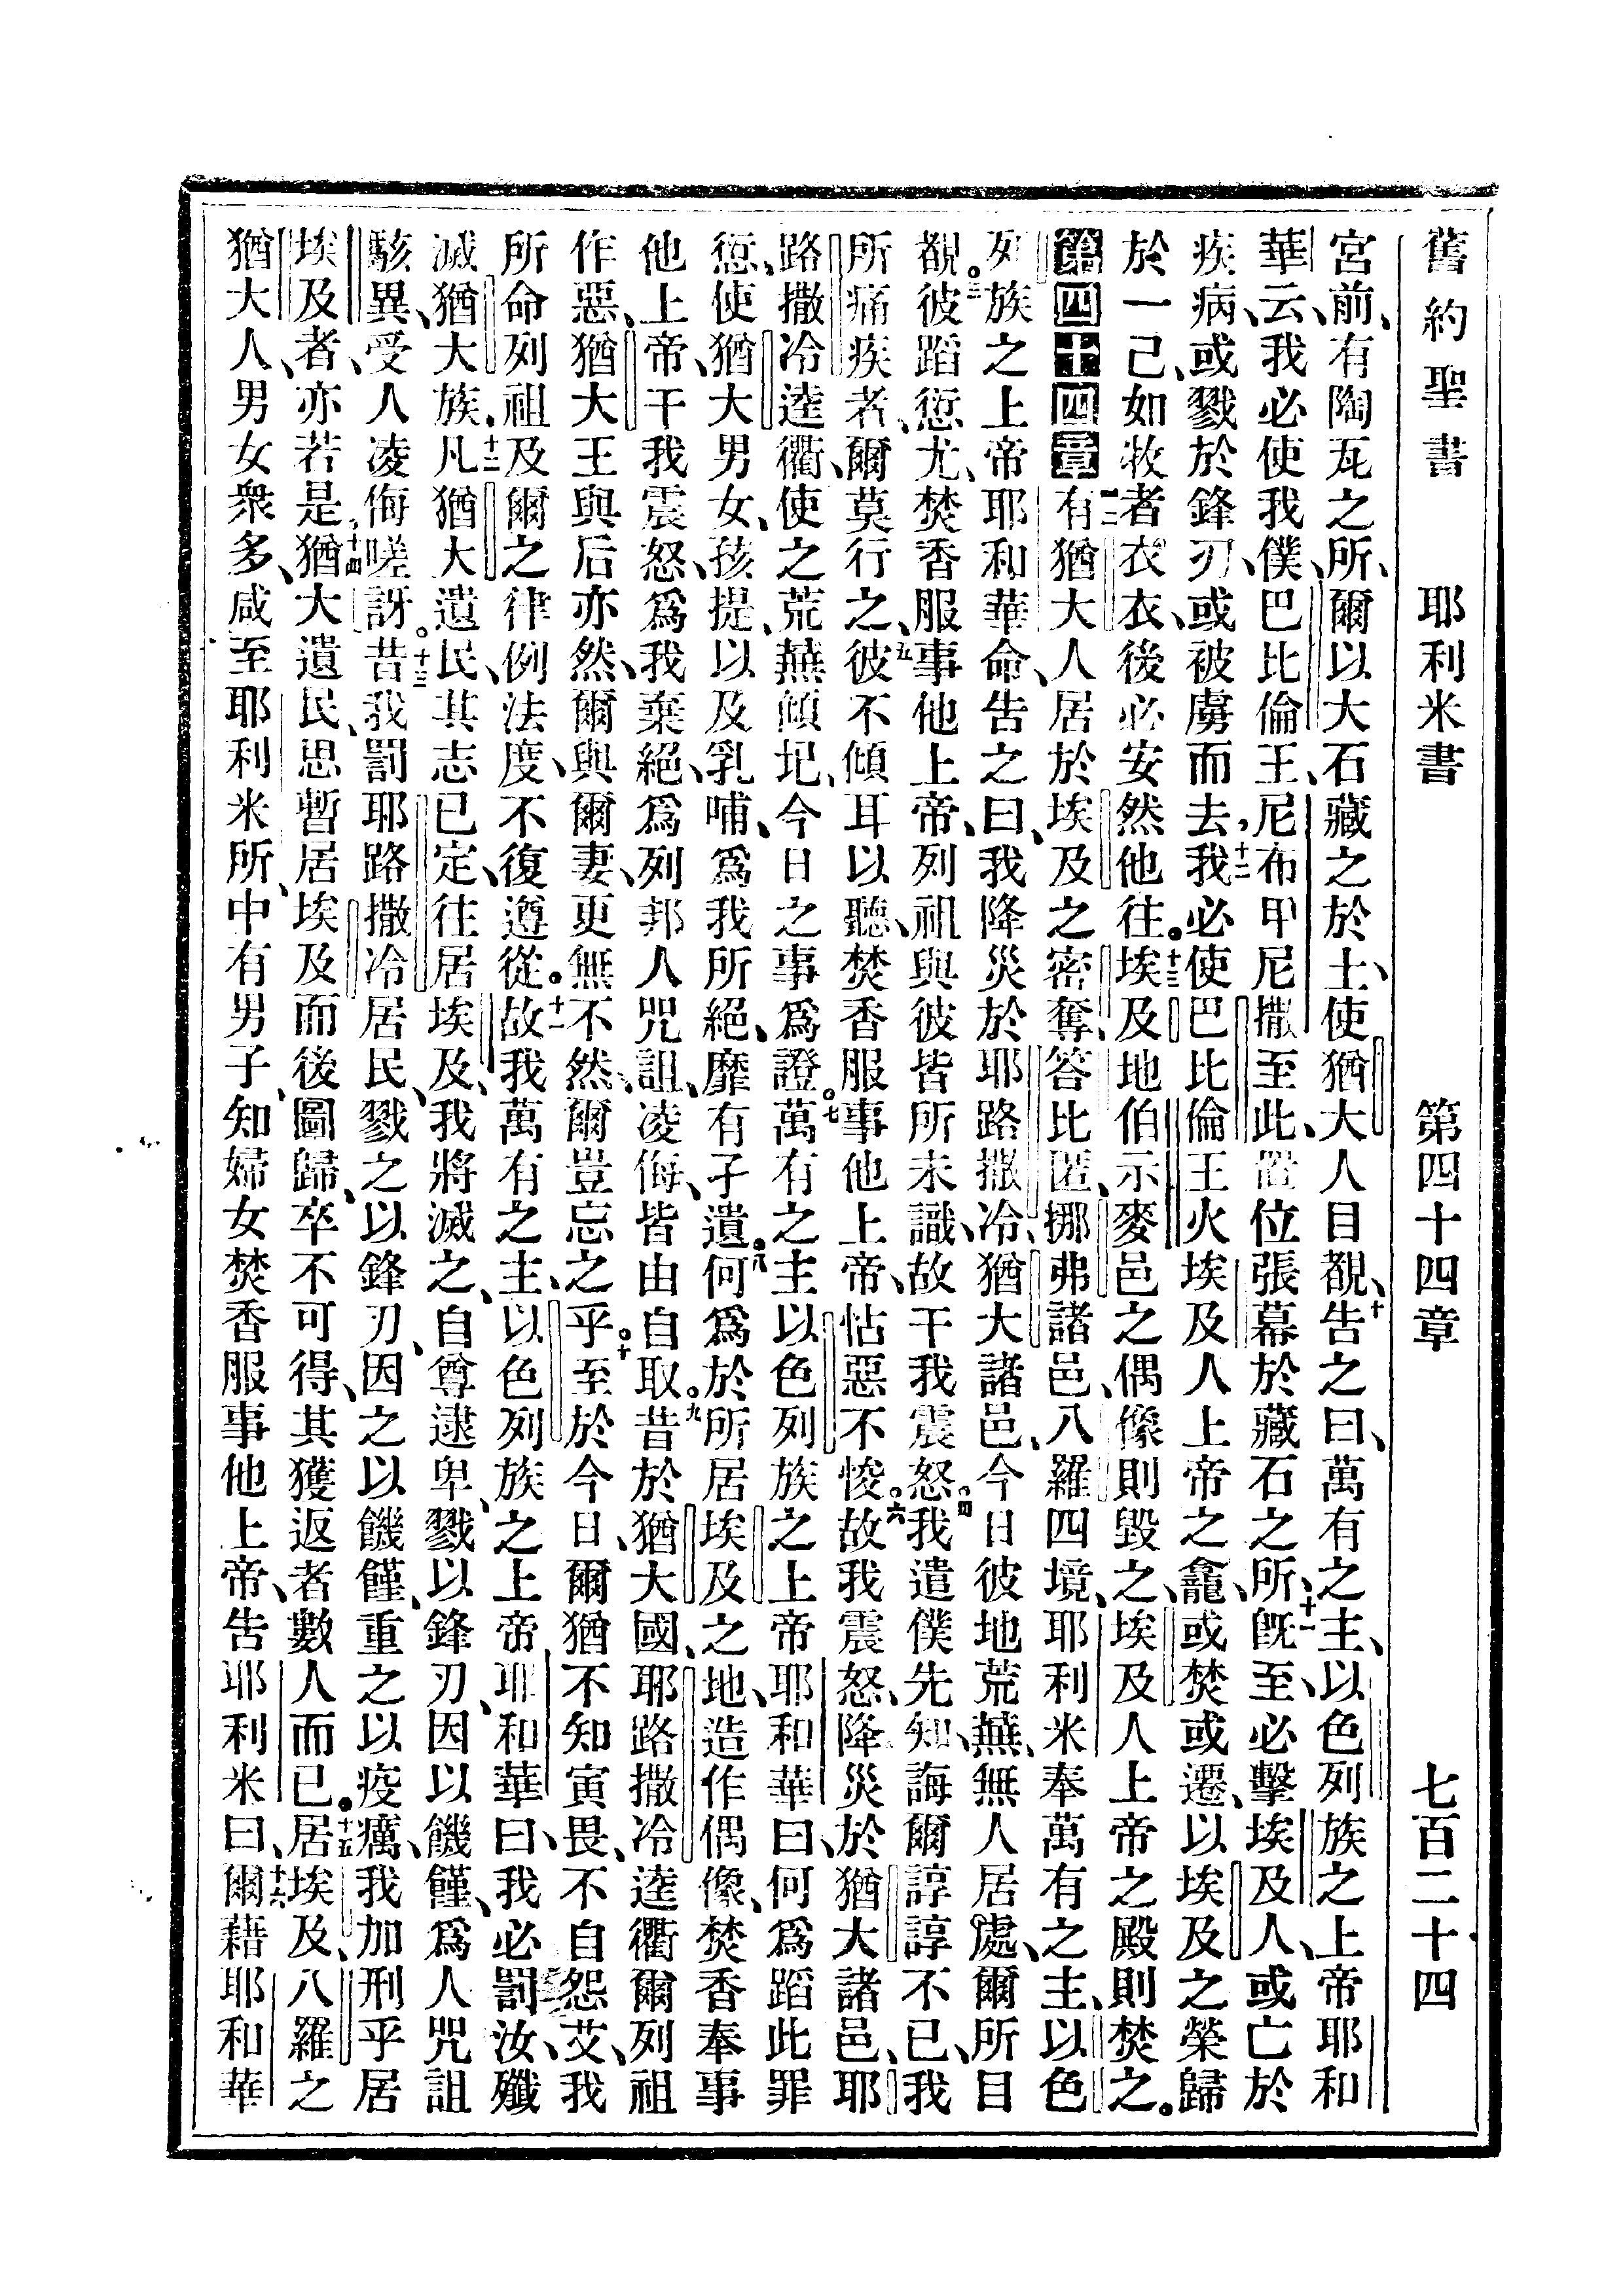 舊約聖書 耶利米書 第四十四章 七百二十四
宮前、有陶瓦之所、爾以大石藏之於土、使猶大人目覩、十告之曰、萬有之主、以色列族之上帝耶和
華云、我必使我僕、巴比倫王、尼布甲尼撒至此、置位張幕於藏石之所、十一旣至、必擊埃及人、或亡於
疾病、或戮於鋒刃、或被虜而去、十二我必使巴比倫王火埃及人上帝之龕、或焚或遷、以埃及之榮歸
於一己、如牧者衣衣、後必安然他往。十三埃及地伯示麥邑之偶像則毀之、埃及人上帝之殿則焚之。
第四十四章 一二有猶大人、居於埃及之密奪、答比匿、挪弗諸邑、八羅四境、耶利米奉萬有之主、以色
列族之上帝耶和華命、告之曰、我降災於耶路撒冷、猶大諸邑、今日彼地荒蕪、無人居處、爾所目
覩。三彼蹈愆尤、焚香服事他上帝、列祖與彼皆所未識、故干我震怒。四我遣僕先知、誨爾諄諄不已、我
所痛疾者、爾莫行之、五彼不傾耳以聽、焚香服事他上帝、怙惡不悛。六故我震怒、降災於猶大諸邑、耶
路撒冷逵衢、使之荒蕪傾圮、今日之事爲證。七萬有之主以色列族之上帝、耶和華曰、何爲蹈此罪
愆、使猶大男女、孩提、以及乳哺、爲我所絕、靡有孑遺。八何爲於所居埃及之地、造作偶像、焚香奉事
他上帝、干我震怒、爲我棄絕、爲列邦人咒詛、凌侮、皆由自取。九昔於猶大國、耶路撒冷逵衢爾列祖
作惡、猶大王與后亦然、爾與爾妻、更無不然、爾豈忘之乎。十至於今日、爾猶不知寅畏、不自怨艾、我
所命列祖及爾之律例法度、不復遵從。十一故我萬有之主、以色列族之上帝耶和華曰、我必罰汝、殲
滅猶大族。十二凡猶大遺民、其志已定、往居埃及、我將滅之、自尊逮卑、戮以鋒刃、因以饑饉、爲人咒詛
駭異、受人凌侮嗟訝。十三昔我罰耶路撒冷居民、戮之以鋒刃、因之以饑饉、重之以疫癘、我加刑乎居
埃及者、亦若是、十四猶大遺民、思暫居埃及而後圖歸、卒不可得、其獲返者數人而已。十五居埃及、八羅之
猶大人、男女衆多、咸至耶利米所、中有男子、知婦女焚香服事他上帝、告耶利米曰、十六爾藉耶和華